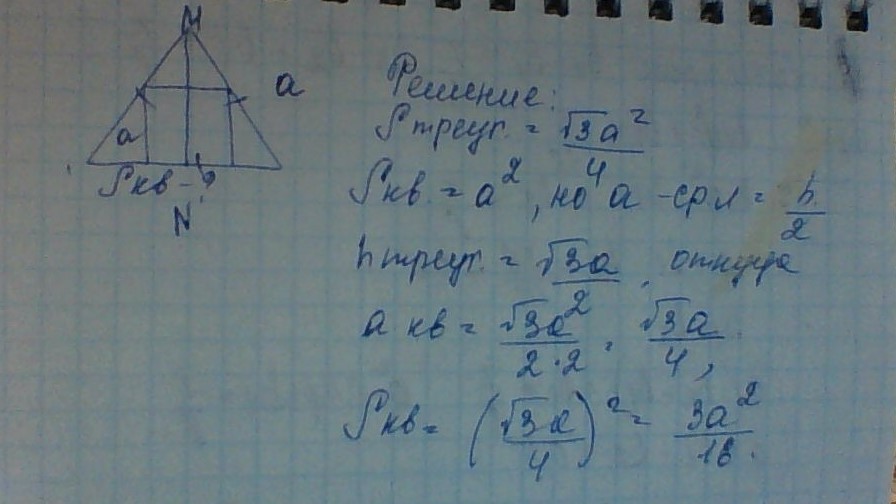 M
a
a
Sкв - ?
N
Решение:
Sтреуг. = √3a²/4
Sкв. = a², но a - ср л = h/2
hтреуг. = √3a/2, откуда
a кв = √3a/2·2 = √3a/4,
Sкв = (√3a/4)² = 3a²/16.